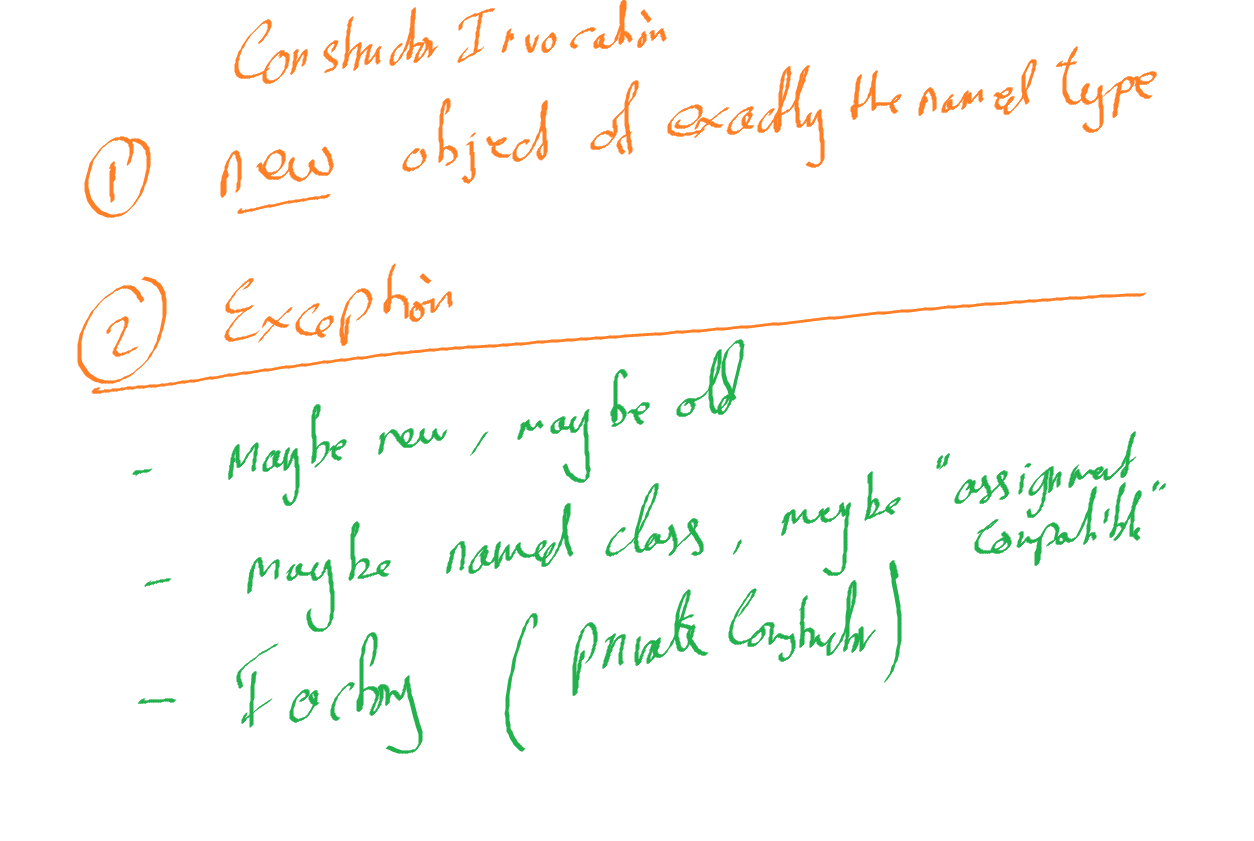 Constructor Invocation
① new object of exactly the named type
② Exception
- Maybe new, maybe old
- Maybe named class, maybe "assignment
compatible"
- Factory (private constructor)